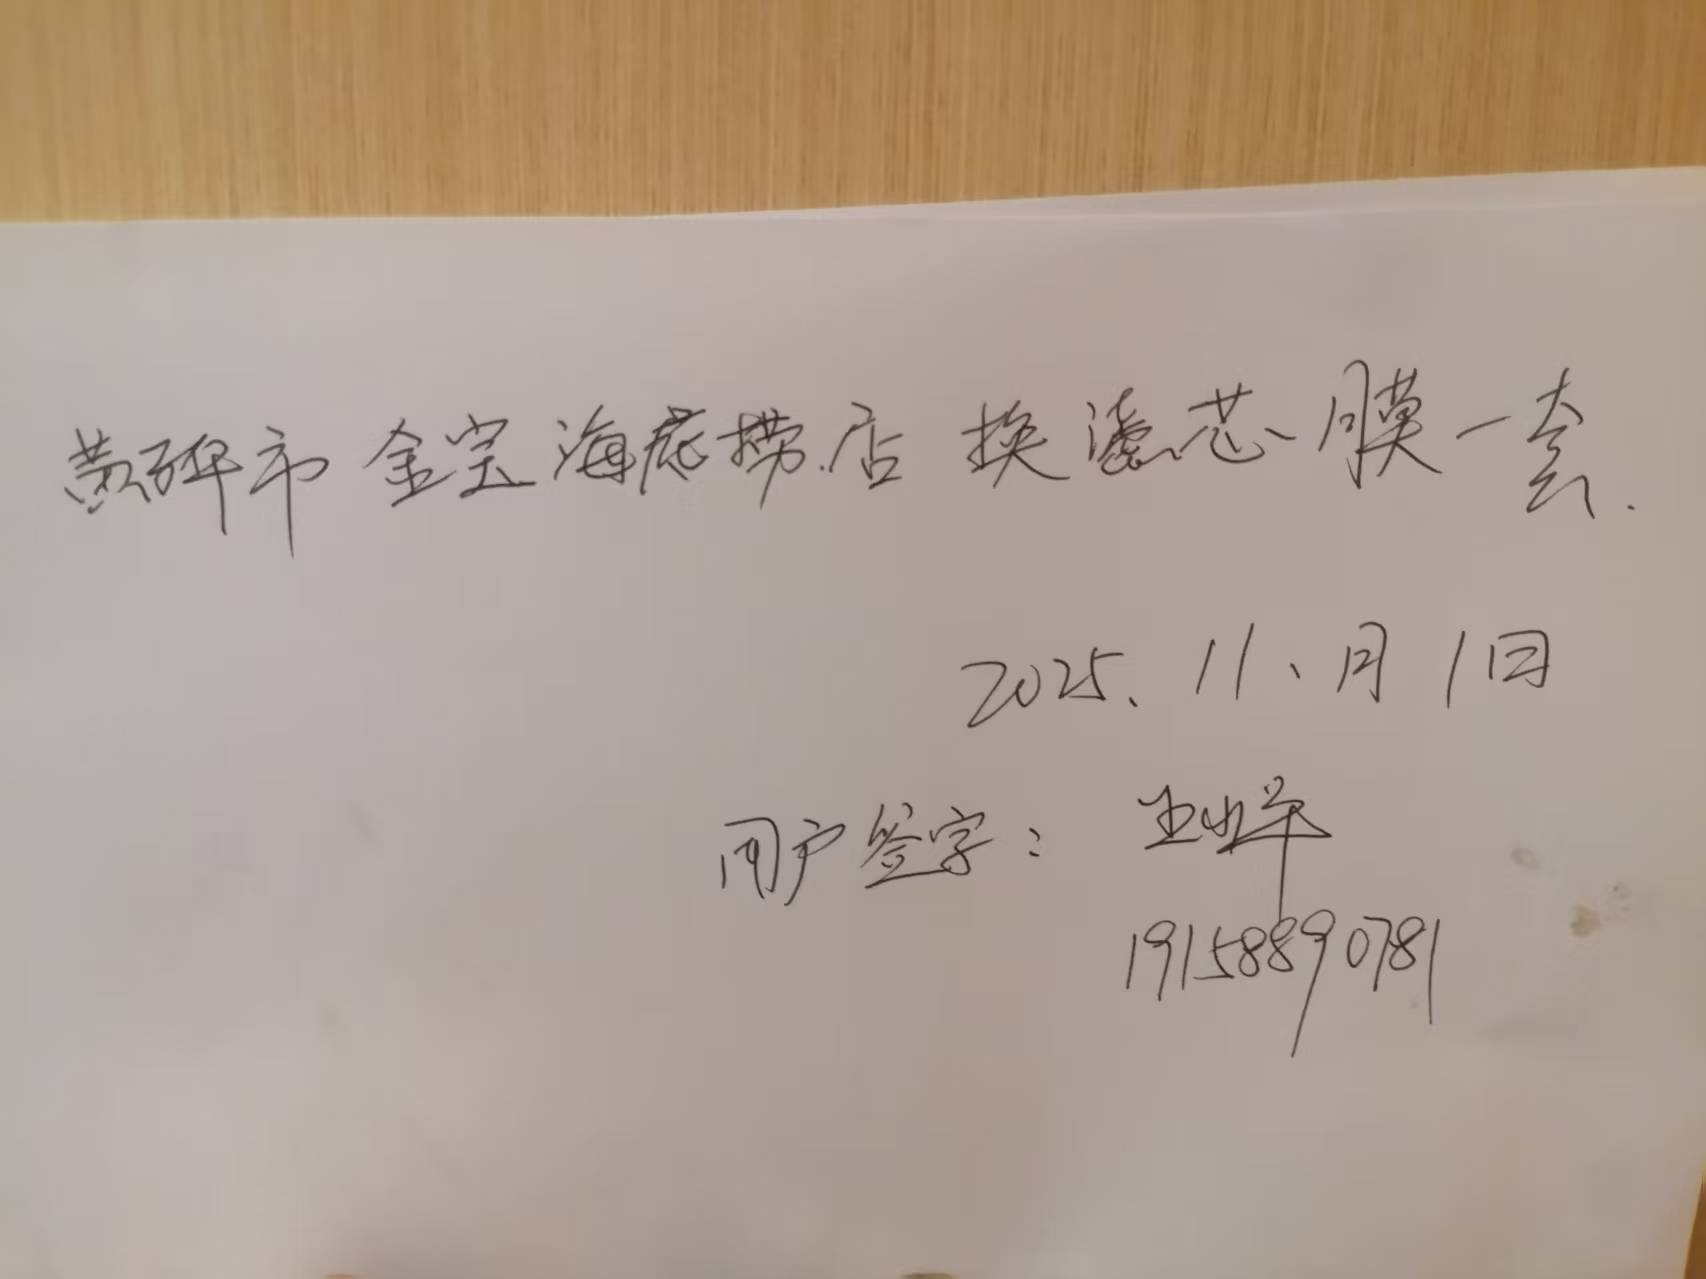 黄骅市 金宝海底捞店 换滤芯膜一套.
2025. 11、月 1日
用户签字: 王
19158890781